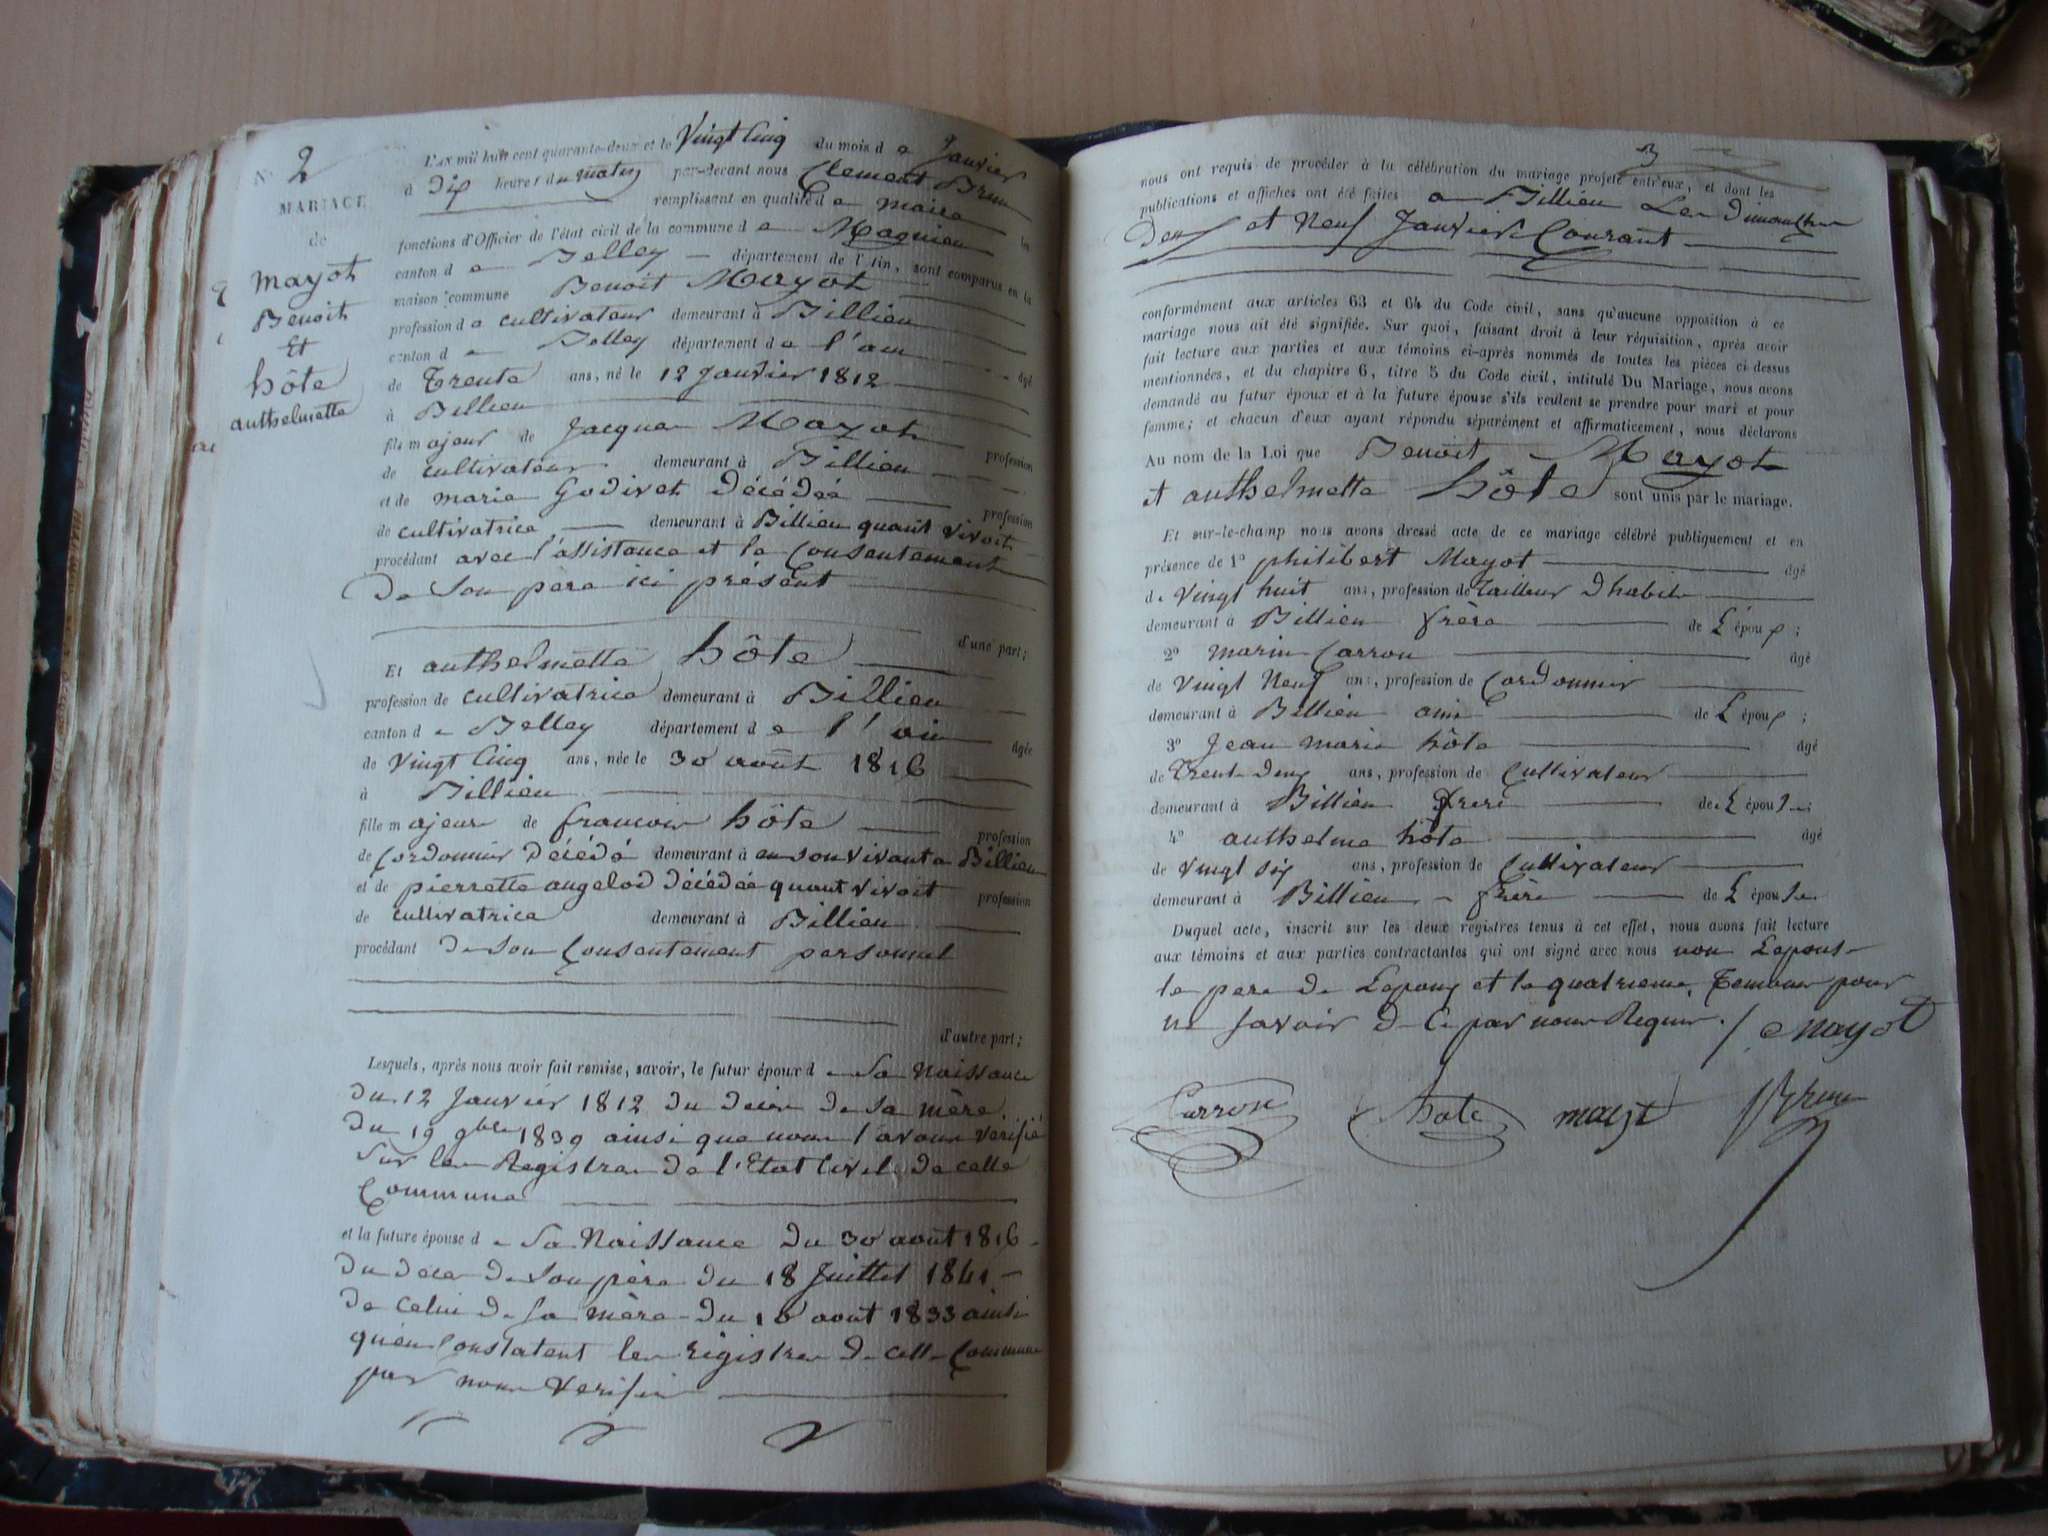 N.º 2
MARIAGE
de
Mayot
Benoit
Et
hôte
anthelmette
L'an mil huit cent quarante-deux et le Vingt Cinq du mois d e Janvier
à Dix heures du matin par-devant nous Clement Brun
remplissant en qualité d e maire les
fonctions d'Officier de l'état civil de la commune d e Magnieu
canton d e Belley département de l'Ain, sont comparus en la
maison commune Benoit Mayot
profession d e cultivateur demeurant à Billieu
canton d e Belley département d e l'ain âgé
de Trente ans, né le 12 Janvier 1812
à Billieu
fils m ajeur de Jacque Mayot profession
de cultivateur demeurant à Billieu
et de marie Godivet décédée profession
de cultivatrice demeurant à Billieu quant vivoit
procédant avec l'assistance et le Consentement
De Son père ici présent
d'une part;
Et anthelmette hôte
profession de cultivatrice demeurant à Billieu
canton d e Belley département d e l'ain âgée
de Vingt Cinq ans, née le 30 août 1816
à Billieu
fille m ajeure de francois hôte profession
de Cordonnier Décédé demeurant à en son vivant a Billieu
et de pierrette angelod décédée quant vivoit profession
de cultivatrice demeurant à Billieu
procédant de son Consentement personnel
d'autre part;
Lesquels, après nous avoir fait remise, savoir, le futur époux d e Sa Naissance
du 12 Janvier 1812 du décès de sa mère
du 19 9bre 1839 ainsi que nous l'avons vérifié
Sur les Registres de l'Etat Civil de cette
Commune
et la future épouse d e Sa Naissance du 30 août 1816
du décès de Son père du 18 Juillet 1841
de celui de Sa mère du 18 août 1833 ainsi
qu'en Constatent les régistres de cette Commune
par nous Verifiés
3
nous ont requis de procéder à la célébration du mariage projeté entr'eux, et dont les
publications et affiches ont été faites a Billieu Les Dimanches
Deux et Neuf Janvier Courant
conformément aux articles 63 et 64 du Code civil, sans qu'aucune opposition à ce
mariage nous ait été signifiée. Sur quoi, faisant droit à leur réquisition, après avoir
fait lecture aux parties et aux témoins ci-après nommés de toutes les pièces ci-dessus
mentionnées, et du chapitre 6, titre 5 du Code civil, intitulé Du Mariage, nous avons
demandé au futur époux et à la future épouse s'ils veulent se prendre pour mari et pour
femme; et chacun d'eux ayant répondu séparément et affirmativement, nous déclarons
Au nom de la Loi que Benoit Mayot
et anthelmette hôte sont unis par le mariage.
Et sur-le-champ nous avons dressé acte de ce mariage célébré publiquement et en
présence de 1º philibert Mayot âgé
de Vingt huit ans, profession de Tailleur D'habits
demeurant à Billieu frère de L'époux;
2º marin Carron âgé
de Vingt Neuf ans, profession de Cordonnier
demeurant à Billieu ami de L'époux;
3º Jean marie hôte âgé
de Trente deux ans, profession de Cultivateur
demeurant à Billieu frere de L'épouse;
4º anthelme hôte âgé
de Vingt Six ans, profession de Cultivateur
demeurant à Billieu frère de L'épouse
Duquel acte, inscrit sur les deux registres tenus à cet effet, nous avons fait lecture
aux témoins et aux parties contractantes qui ont signé avec nous non Lepouse
le pere de Lepoux et le quatrieme Temoin pour
ne Savoir de Ce par nous Requis. Mayot
Carron hote mayot Brun